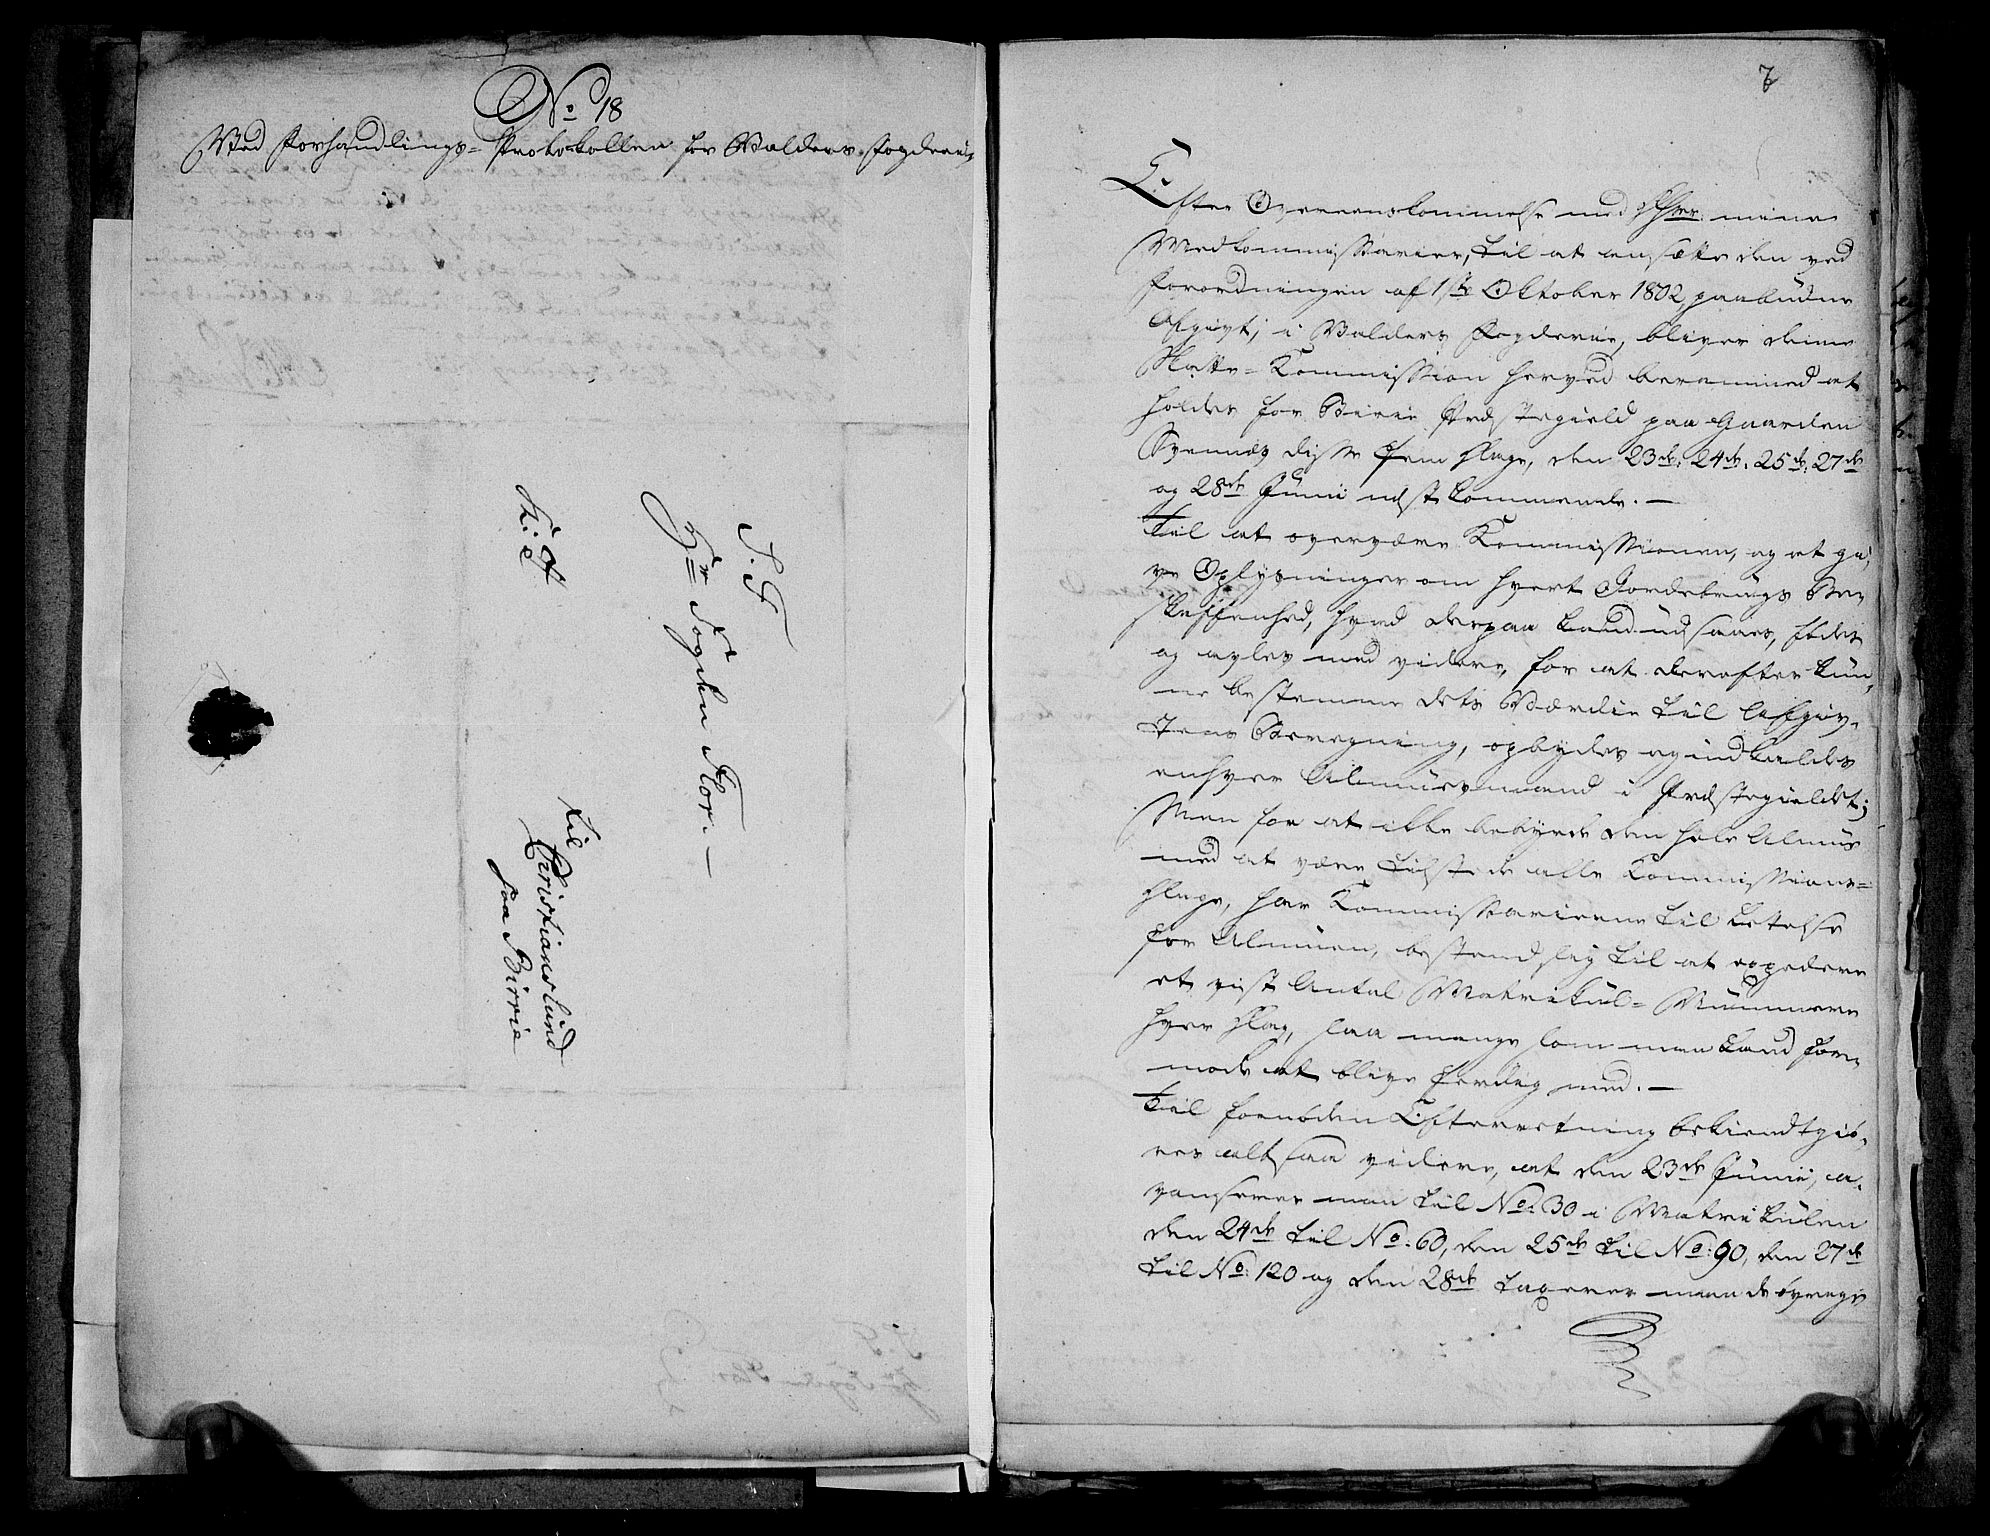 No 18
Ved Forhandlings-Protokollen for Valders Fogderie
S. T.
Hr Fogden Flor. —
K: T.
til
Christianslund
paa Birrie
Efter Overeenskommelse med Hrer mine
Medkommissarier, til at ansætte den ved
Forordningen af 1ste Oktober 1802 paabudne
Afgivt, i Valders Fogderie, bliver denne
Skatte-Kommission herved berammed at
holdes for Birie Præstegield paa Gaarden
Svennæs disse Fem Dage, den 23de, 24de, 25de, 27de
og 28de Junii næstkommende. —
Til at overvære Kommissionen, og at gi,
ve Oplysninger om hvert Jordebrugs Be,
skaffenhed, hvad derpaa kand udsaaes, fødes
og avles med videre, for at derefter kun,
ne bestemme dets Værdie til Afgiv,
tens Beregning, opbydes og indkaldes
enhver Almuesmand i Præstegieldet;
Men for at ikke bebyrde den hele Almue
med at være tilstede alle Kommissions-
Dage, har Kommissarierne til Letelse
for Almuen, bestemd sig til at expedere
et vist Antal Matrikul-Nummere
hver Dag, saa mange som man kand for,
mode at blive færdig med. —
Til fornøden Efterretning bekiendtgiø,
res altsaa videre, at den 23de Junii, a,
vanserer man til No: 30 i Matrikulen
den 24de til No: 60, den 25de til No: 90, den 27de
til No: 120 og den 28de tagerer man de øvrige